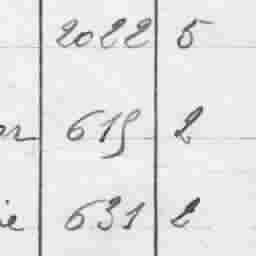 2022 5
er 619 2
ie 631 2